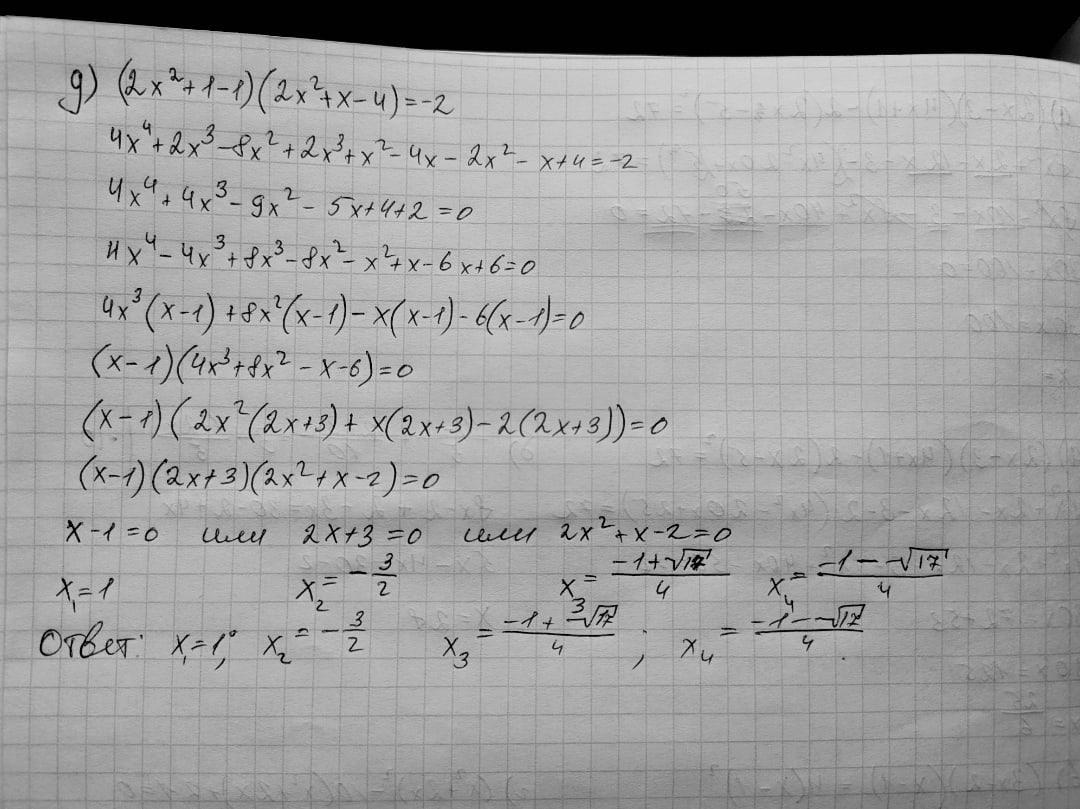 g) (2x² + 1 - 1)(2x² + x - 4) = -2
4x⁴ + 2x³ - 8x² + 2x³ + x² - 4x - 2x² - x + 4 = -2
4x⁴ + 4x³ - 9x² - 5x + 4 + 2 = 0
4x⁴ - 4x³ + 8x³ - 8x² - x² + x - 6x + 6 = 0
4x³(x - 1) + 8x²(x - 1) - x(x - 1) - 6(x - 1) = 0
(x - 1)(4x³ + 8x² - x - 6) = 0
(x - 1)(2x²(2x + 3) + x(2x + 3) - 2(2x + 3)) = 0
(x - 1)(2x + 3)(2x² + x - 2) = 0
x - 1 = 0 или 2x + 3 = 0 или 2x² + x - 2 = 0
x₁ = 1 x₂ = -3/2 x₃ = (-1 + √17)/4 x₄ = (-1 - √17)/4
Ответ: x₁ = 1; x₂ = -3/2 x₃ = (-1 + √17)/4 ; x₄ = (-1 - √17)/4.